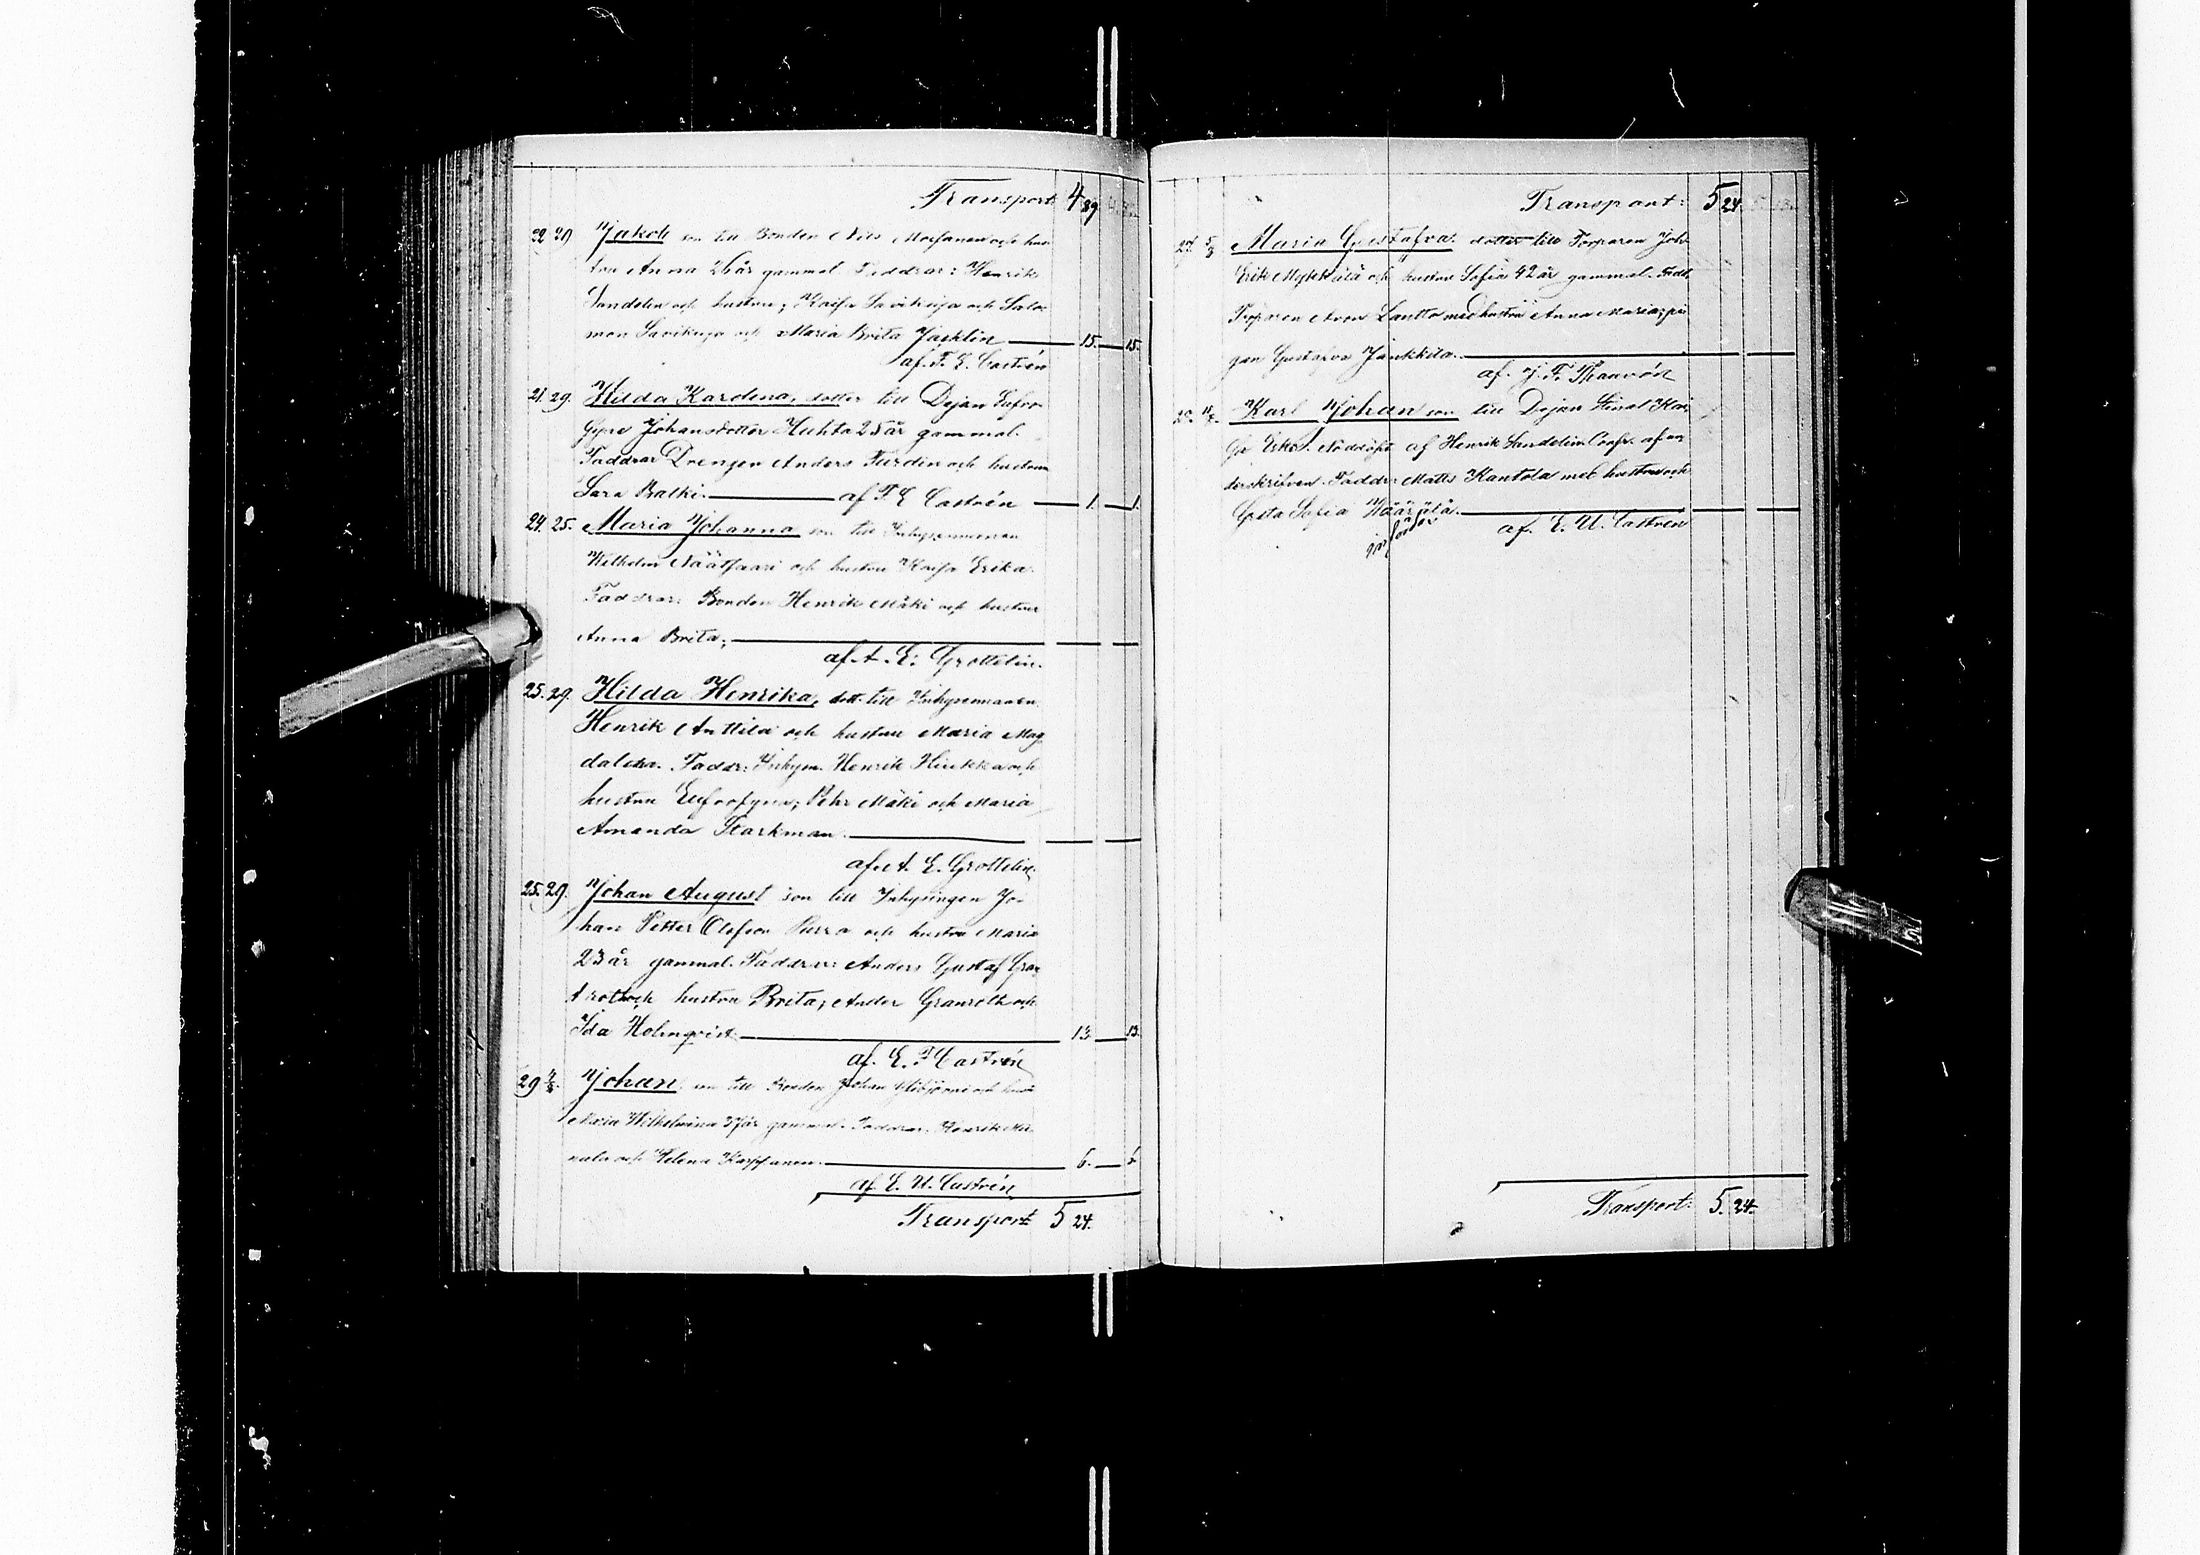 Transport: 4 89
22 29 Jakob son till Bonden Nils och hus-
trun Anna 26 år gammal. Faddrar: Henrik
Sandelin och hustru; Kaisa Savikuja och Salo-
mon Savikuja och Maria Brita Jäsklin 15. 15.
af F. E. Castrén
21. 29. Hilda Karolina, dotter till Dejan Eufro-
syne Johansdotter Huhta 25 år gammal.
Faddrar Drengen Anders Turdin och hustrun
Sara Balki. af F. E Castrén 1. 1.
24. 25. Maria Johanna son till Inhysesmannen
Wilhelm Näätsaari och hustru Kaisa Erika.
Faddrar: Bonden Henrik Mäki och hustrur
Anna Brita,
af A. E. Grottelin.
25. 29. Hilda Henrika, dott. till Inhysesmannen
Henrik Anttila och hustru Maria Mag-
dalena. Faddr: Inhysm. Henrik och
hustru Eufrosyna; Pehr Mäki och Maria
Amanda Starkman.
af A. E. Grottelin.
25. 29. Johan August son till Inhysingen Jo-
han Petter Olofson Purra och hustru Maria
23 år gammal. Faddrar: Anders Gustaf Gra-
roth och hustru Brita; Ander Granroth och
Ida Holmqvist 13. 13.
af. E. F Castrén
29 Johan son till Bonden Johan och hust
Maria Wilhelmina 37 år gammal. Faddrar. Henrik
och Helena Karppanen. 6. 6
af E. U. Castrén
Transport 5 24.
Transport: 5 24.
Maria Gustafva. dotter till Torparen Joh.
Erik Mykkälä och hustru Sofia 42 år gammal. Fadd.
Torparen Aron Lantto med hustru Anna Maria; pi-
gan Gustafva Jänkkila.
af. J. F. Thauvón
Karl Johan son till Dejan
Nöddöpt af Henrik Sandelin Conf. af un-
derskrifven. Faddr: Matts Kantola med hustru och
Greta Sofia Wäärälä.
införes
af. E. U. Castren
Transport: 5. 24.